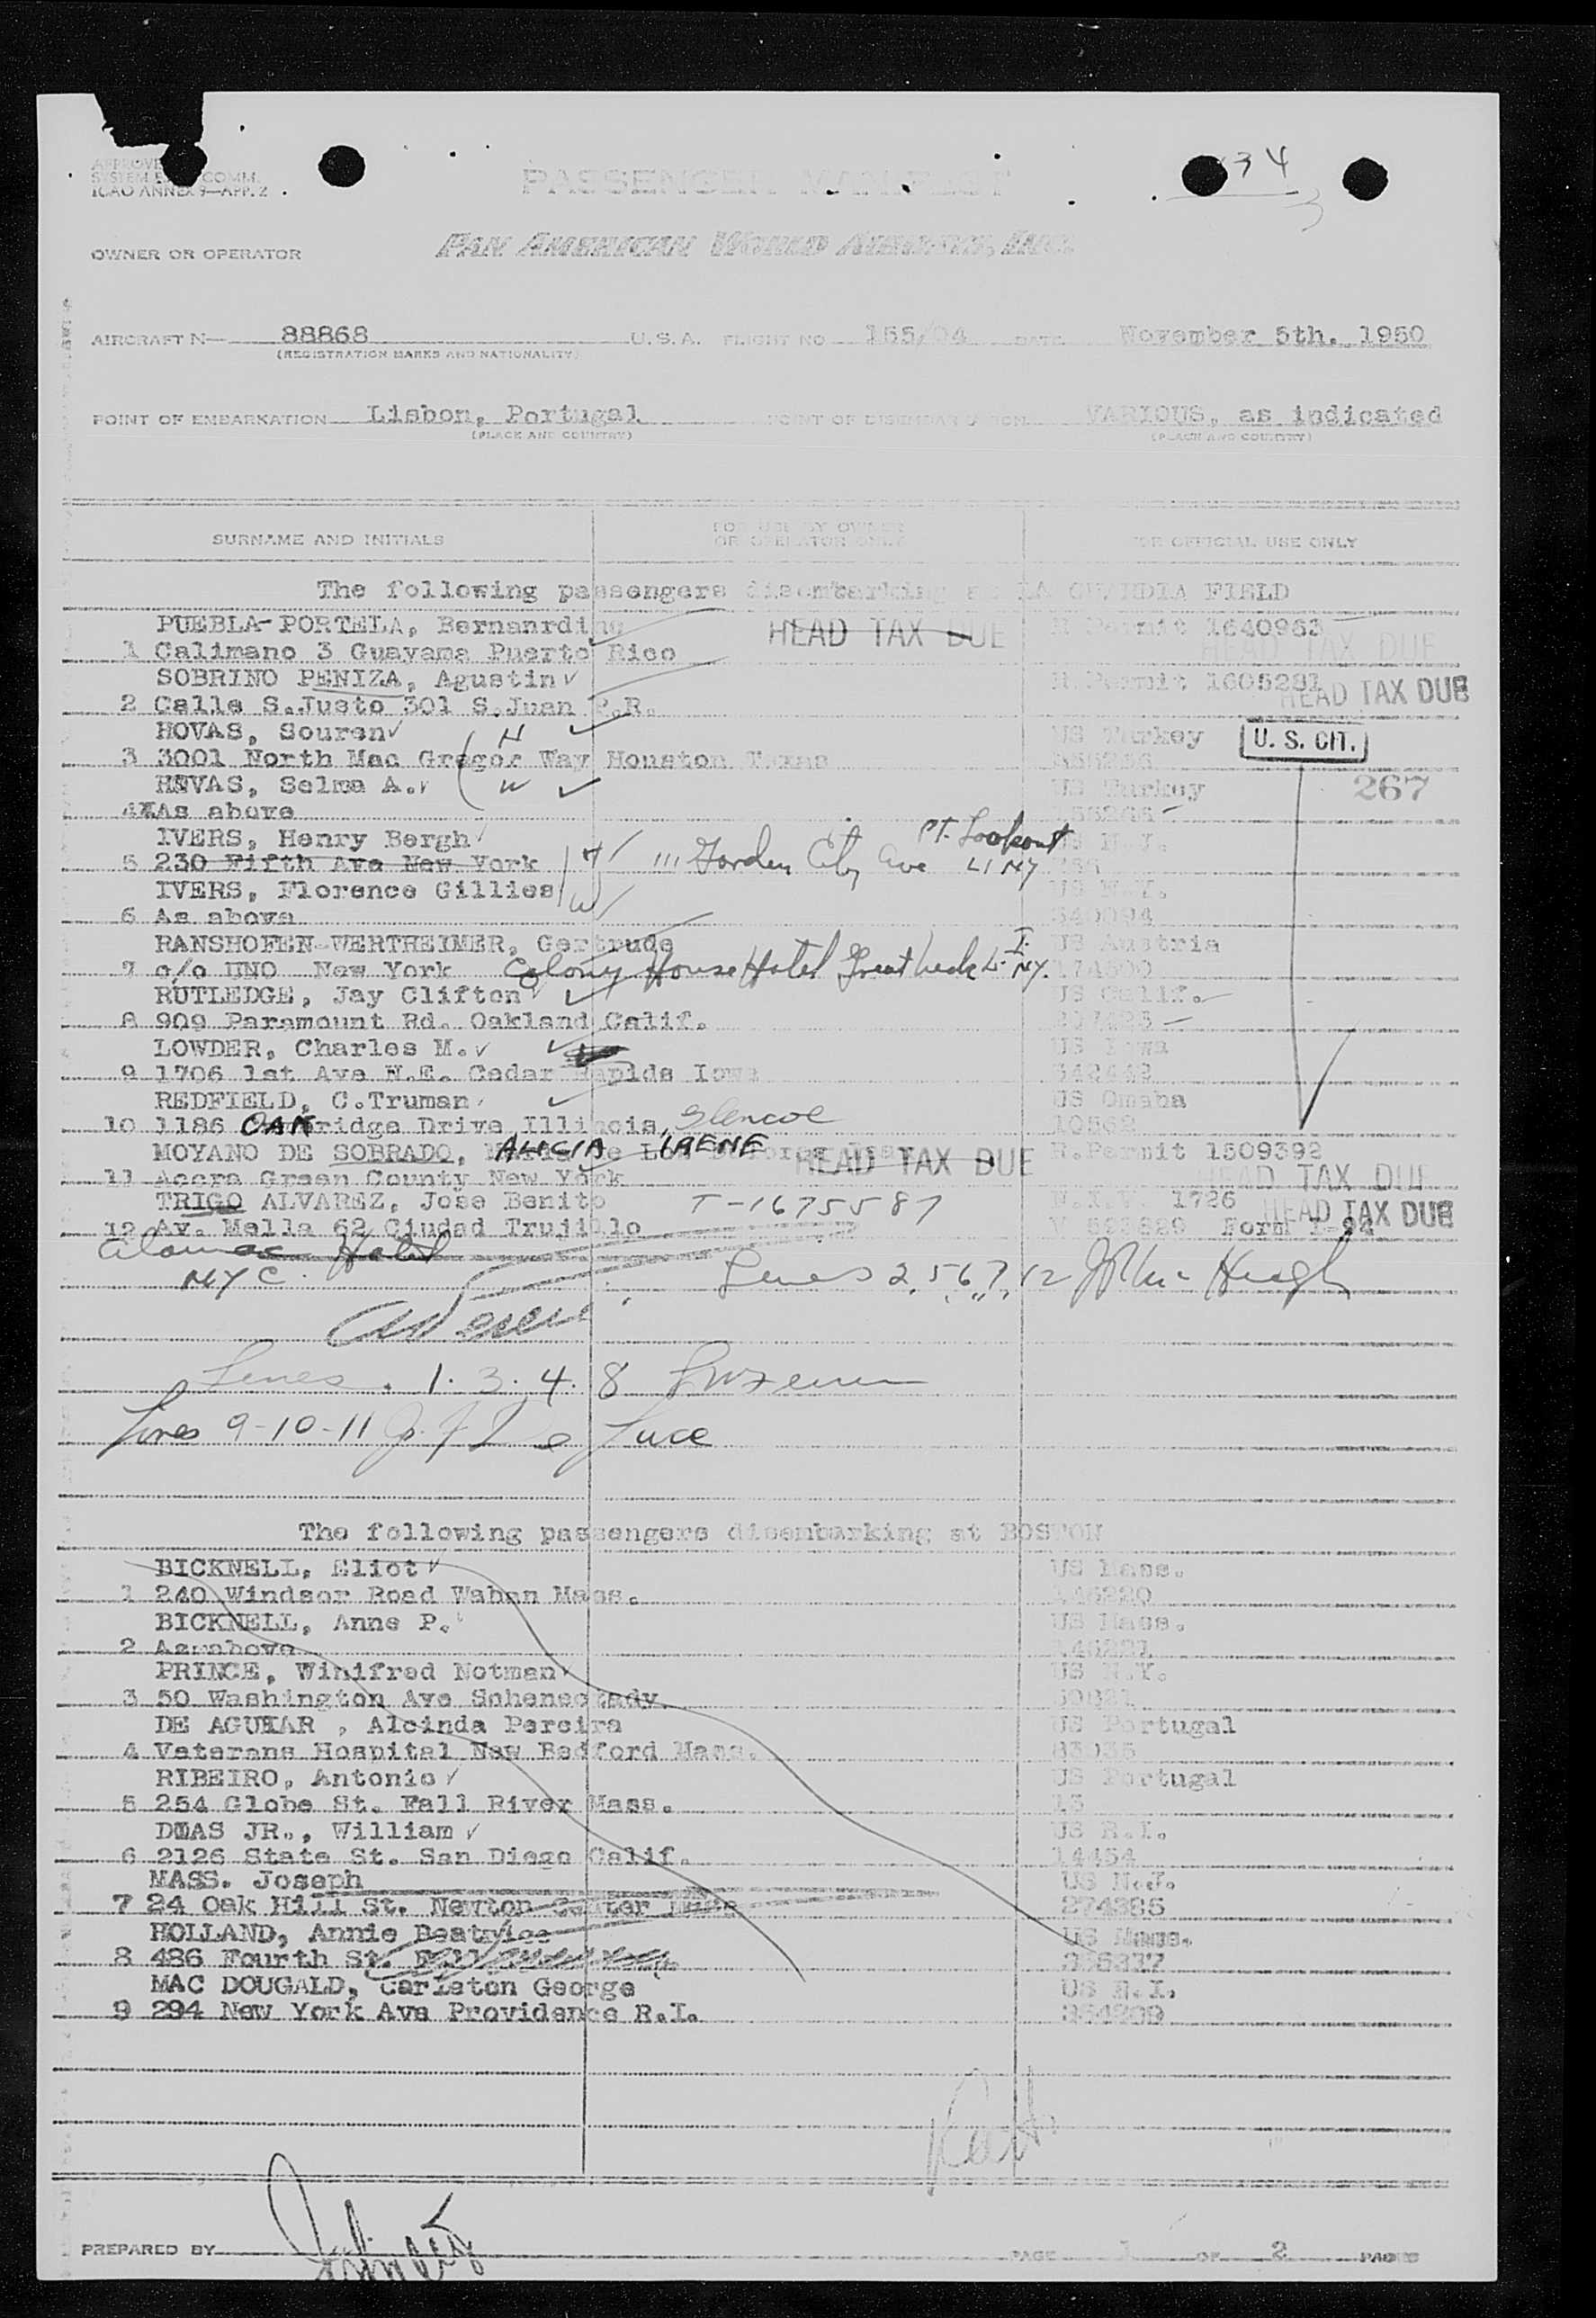 34
ICAO ANNEX 9—APP. 2
PASSENGER MANIFEST
OWNER OR OPERATOR PAN AMERICAN WORLD AIRWAYS, INC.
AIRCRAFT N— 88868 U.S.A. FLIGHT NO 155/04 DATE November 5th. 1950
(REGISTRATION MARKS AND NATIONALITY)
POINT OF EMBARKATION Lisbon, Portugal POINT OF DISEMBARKATION VARIOUS, as indicated
(PLACE AND COUNTRY) (PLACE AND COUNTRY)
SURNAME AND INITIALS FOR USE BY OWNER OR OPERATOR ONLY FOR OFFICIAL USE ONLY
The following passengers disembarking at LA GUARDIA FIELD
PUEBLA-PORTELA, Bernanrdino HEAD TAX DUE R.Permit 1640963
1 Calimano 3 Guayama Puerto Rico HEAD TAX DUE
SOBRINO PENIZA, Agustin R.Permit 1605281 HEAD TAX DUE
2 Calle S.Justo 301 S.Juan P.R.
HOVAS, Souren H US Turkey U. S. CIT.
3 3001 North Mac Gregor Way Houston Texas
HOVAS, Selma A. W US Turkey 267
4 As above
IVERS, Henry Bergh Pt. Lookout US N.Y.
5 230 Fifth Ave New York H 111 Garden City Ave LI NY
IVERS, Florence Gillies W US N.Y.
6 As above 340094
RANSHOFEN-WERTHEIMER, Gertrude US Austria
7 c/o UNO New York Colony House Hotel Great Neck L.I. NY.
RUTLEDGE, Jay Clifton US Calif.
8 909 Paramount Rd. Oakland Calif.
LOWDER, Charles M. US Iowa
9 1706 1st Ave N.E. Cedar Rapids Iowa
REDFIELD, C.Truman US Omaha
10 1186 OAK ridge Drive Illinois, Glencoe 10562
MOYANO DE SOBRADO, ALICIA IRENE HEAD TAX DUE R.Permit 1509392
11 Accra Green County New York HEAD TAX DUE
TRIGO ALVAREZ, Jose Benito T-1675587 1726 HEAD TAX DUE
12 Av. Mella 62 Ciudad Trujillo Form I-94
Alamac Hotel
NYC. Lines 2 5 6 7 12 McHugh
Lines 1. 3. 4. 8
Lines 9-10-11 J. F. De Luce
The following passengers disembarking at BOSTON
BICKNELL, Eliot US Mass.
1 240 Windsor Road Waban Mass. 146220
BICKNELL, Anne P. US Mass.
2 As above 146221
PRINCE, Winifred Notman US N.Y.
3 50 Washington Ave Schenectady
DE AGUIAR , Alcinda Pereira US Portugal
4 Veterans Hospital New Bedford Mass.
RIBEIRO, Antonio US Portugal
5 254 Globe St. Fall River Mass. 13
DIAS JR., William US R.I.
6 2126 State St. San Diego Calif. 14454
MASS. Joseph US N.J.
7 24 Oak Hill St. Newton Center Mass 274385
HOLLAND, Annie Beatrice US Mass.
8 486 Fourth St. Fall
MAC DOUGALD, Carleton George US R.I.
9 294 New York Ave Providence R.I. 354209
PREPARED BY PAGE 1 OF 2 PAGES